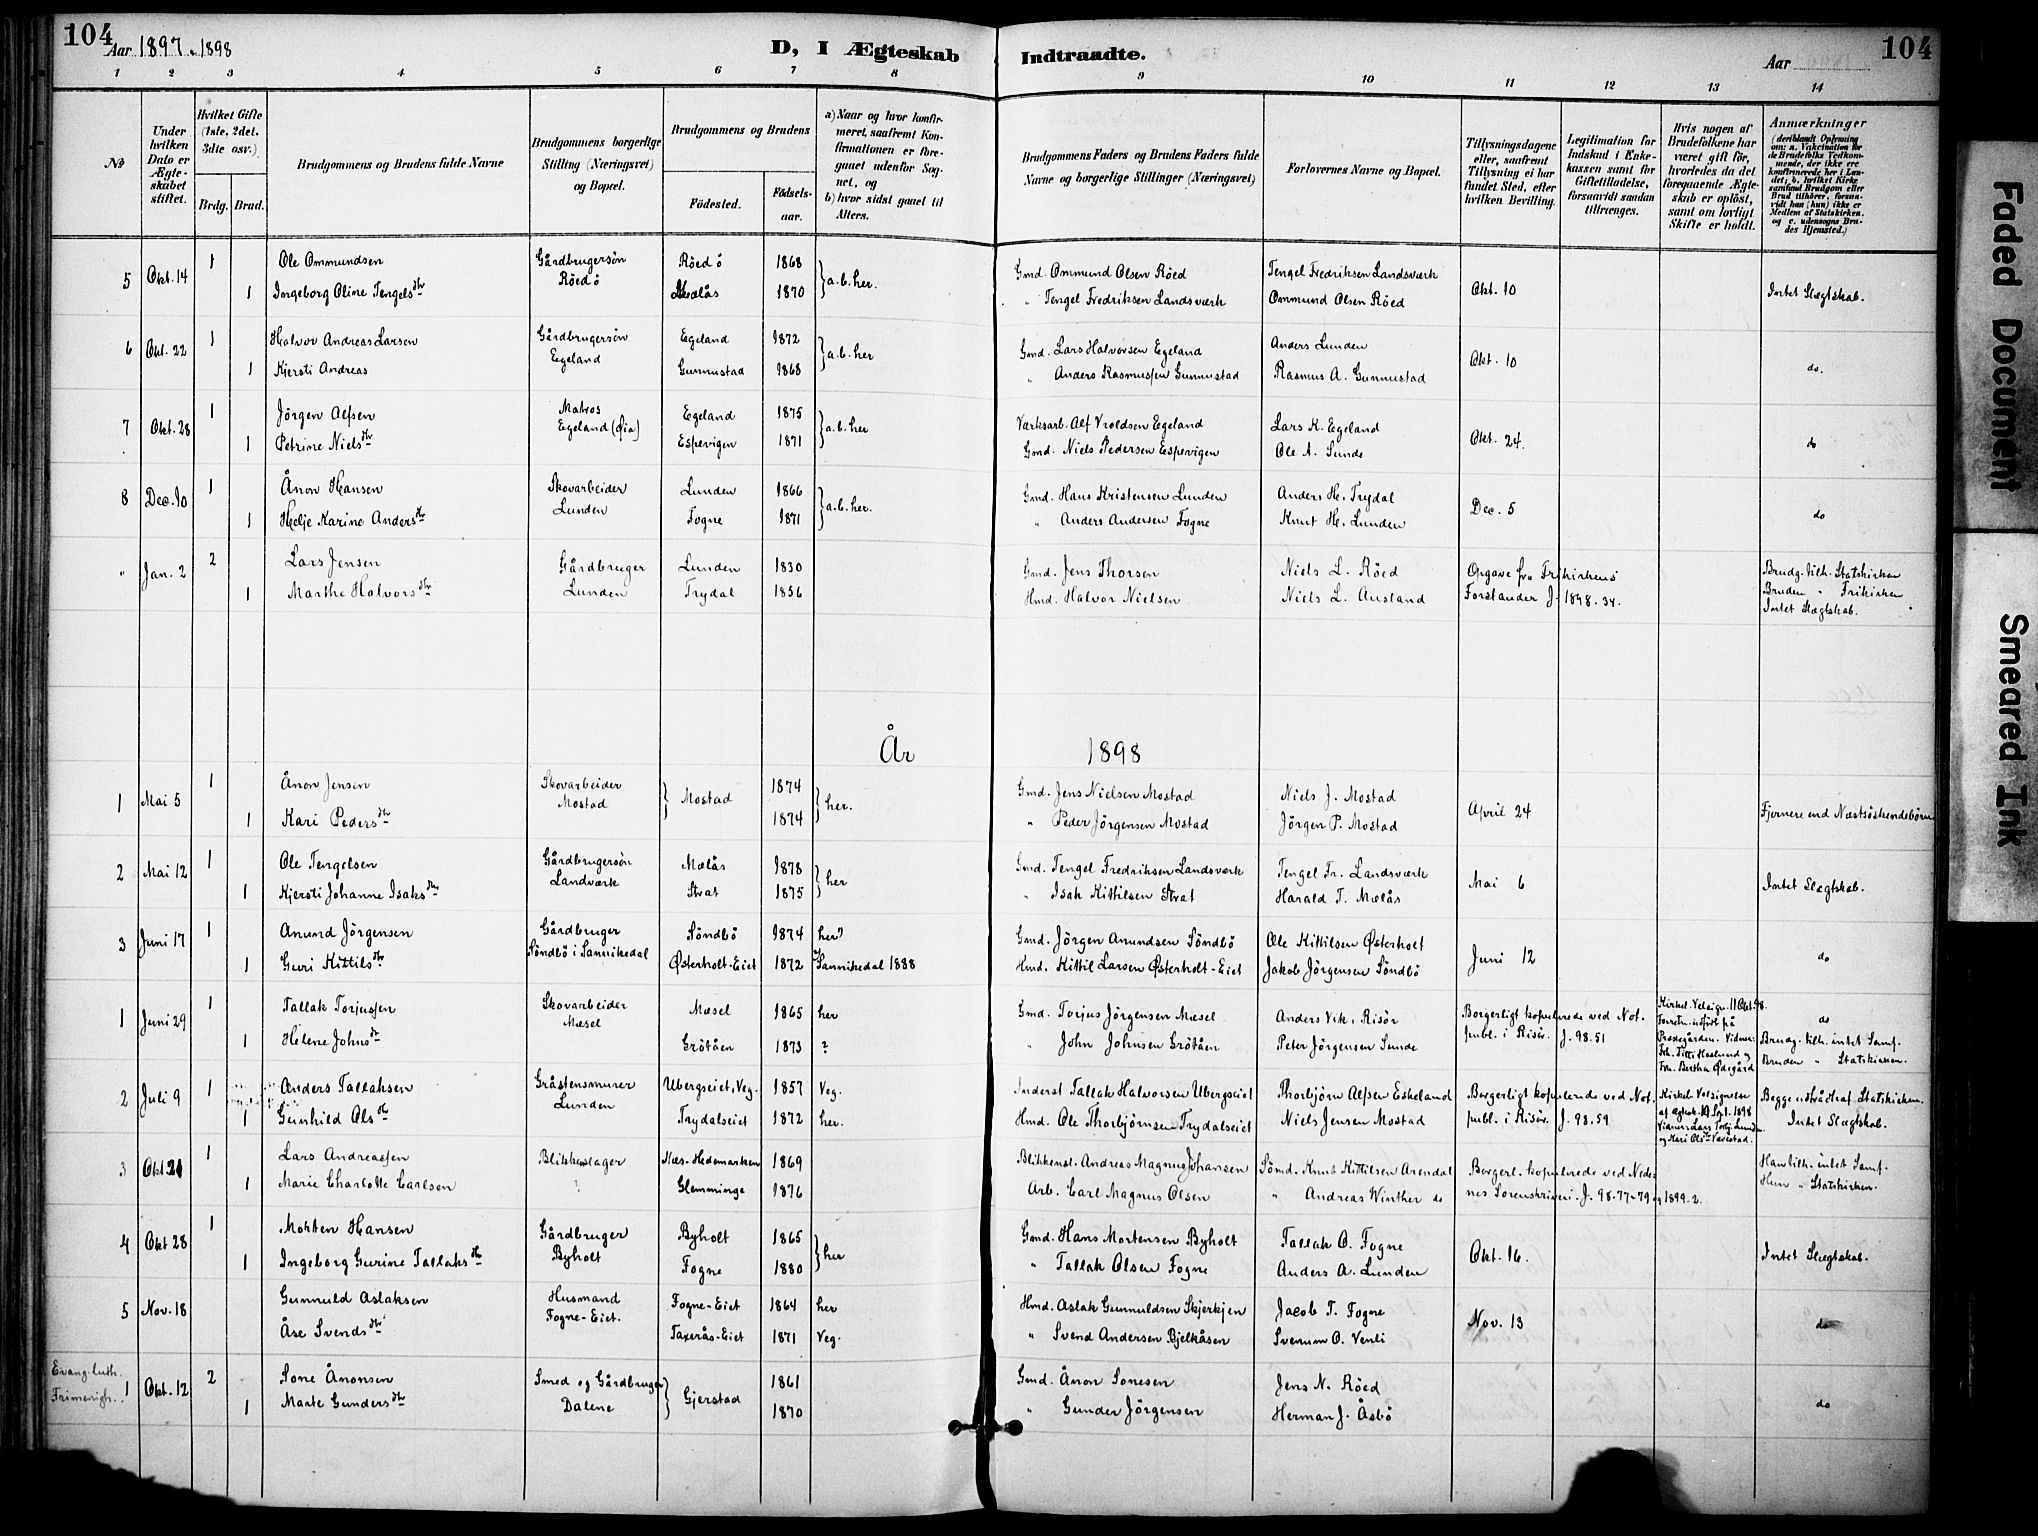 104
Aar 1897-1898
D, I Ægteskab Indtraadte.
Aar
104
1 2 3 4 5 6 7 8 9 10 11 12 13 14
No
Under hvilken Dato er Ægteskabet stiftet.
Hvilket Gifte (1ste, 2det, 3die osv.)
Brdg. Brud.
Brudgommens og Brudens fulde Navne
Brudgommens borgerlige Stilling (Næringsvei) og Bopæl.
Brudgommens og Brudens
Fødested. Fødselsaar.
a) Naar og hvor konfirmeret, saafremt Konfirmationen er foregaaet udenfor Sognet, og
b) hvor sidst gaaet til Alters.
Brudgommens Faders og Brudens Faders fulde Navne og borgerlige Stillinger (Næringsvei)
Forlovernes Navne og Bopæl.
Tillysningsdagene eller, saafremt Tillysning ei har fundet Sted, efter hvilken Bevilling.
Legitimation for Indskud i Enkekassen samt for Giftetilladelse, forsaavidt saadan tiltrænges.
Hvis nogen af Brudefolkene har været gift før, hvorledes da det foregaaende Ægteskab er opløst, samt om lovligt Skifte er holdt.
Anmærkninger
(deriblandt Oplysning om: a. Vakcination for de Brudefolks Vedkommende, der ikke ere konfirmerede her i Landet; b. hvilket Kirkesamfund Brudgom eller Brud tilhører, forsaavidt han (hun) ikke er Medlem af Statskirken, og c. udensogns Brudes Hjemsted.)
5 Okt. 14 1 Ole Ommundsen Gårdbrugersön Röed ö 1868 } a.b. her. Gmd. Ommund Olsen Röed Tengel Fredriksen Landsværk Okt. 10 Intet Slægtskab.
1 Ingeborg Oline Tengelsdtr Röed ö Mælås 1870 " Tengel Fredriksen Landsværk Ommund Olsen Röed
6 Okt. 22 1 Halvor Andreas Larsen Gårdbrugersön Egeland 1872 } a.b. her Gmd. Lars Halvorsen Egeland Anders Lunden Okt. 10 do.
1 Kjersti Andreas Egeland Gunnustad 1868 " Anders Rasmussen Gunnustad Rasmus A. Gunnustad
7 Okt. 28 1 Jörgen Alfsen Matros Egeland 1875 } a.b. her Værksarb. Alf Vroldsen Egeland Lars K. Egeland Okt. 24. do
1 Petrine Nielsdtr Egeland (Øia) Espevigen 1871 Gmd. Niels Pedersen Espevigen Ole A. Sunde
8 Dec. 10 1 Ånon Hansen Skovarbeider Lunden 1866 } a.b. her. Gmd. Hans Kristensen Lunden Anders H. Trydal Dec. 5 do
1 Helje Karine Andersdtr Lunden Fogne 1871 " Anders Andersen Fogne Knut H. Lunden
" Jan. 2 2 Lars Jensen Gårdbruger Lunden 1830 Gmd. Jens Thorsen Niels L. Röed Opgave fra Frikirkens Brudg. tilh. Statskirken
1 Marthe Halvorsdtr Lunden Trydal 1856 Hmd. Halvor Nielsen Niels L. Ausland Forstander J. 1898. 34. Bruden " Frikirken
Intet Slægtskab.
År 1898
1 Mai 5 1 Ånon Jensen Skovarbeider } Mostad 1874 } her. Gmd. Jens Nielsen Mostad Niels J. Mostad April 24 Fjernere end Næstsöskendebörn
1 Kari Pedersdtr Mostad 1874 " Peder Jörgensen Mostad Jörgen P. Mostad
2 Mai 12 1 Ole Tengelsen Gårdbrugersön Mælås 1878 } her Gmd. Tengel Fredriksen Landsværk Tengel Fr. Landsværk Mai 6 Intet Slægtskab.
1 Kjersti Johanne Isaksdtr Landværk Strat 1875 " Isak Kittilsen Strat Harald T. Mælås
3 Juni 17 1 Anund Jörgensen Gårdbruger Söndbö 1874 her Gmd. Jörgen Anundsen Söndbö Ole Kittilsen Østerholt Juni 12 do
1 Guri Kittilsdtr Söndbö i Sannikedal Østerholt-Eiet 1872 Sannikedal 1888 Hmd. Kittil Larsen Østerholt-Eiet Jakob Jörgensen Söndbö
1 Juni 29 1 Tallak Torjussen Skovarbeider Mæsel 1865 her Gmd. Torjus Jörgensen Mæsel Anders Vik, Risör Borgerligt kopulerede ved Not. Kirkel. Velsign. 11 Okt. 98. do
1 Helene Johnsdtr Mæsel Grötåen 1873 ? " John Johnsen Grötåen Peter Jörgensen Sunde publ. i Risör. J. 98.51 Forretn. udfört på Præstgården. Vidner: Frk. Titti Haslund og Fru Bertha Ødegård Brudg. tilh. intet Samf. Bruden " Statskirken.
2 Juli 9 1 Anders Tallaksen Gråstensmurer Ubergseiet, Veg. 1857 Veg. Inderst Tallak Halvorsen Ubergseiet Thorbjörn Alfsen Eskeland Borgerligt kopulerede ved Not. Kirkel. Velsignelse Begge udtrådt af Statskirken.
1 Gunhild Olsdtr Lunden Trydalseiet 1872 her. Hmd. Ole Thorbjörnsen Trydalseiet Niels Jensen Mostad publ. i Risör. J. 98.59 af Ægtesk. 10 Sept. 1898 Vidner: Lars Torbj. Lunden og Kari Olsdtr Vævestad. Intet Slægtskab.
3 Okt 21 1 Lars Andreassen Blikkenslager Næs. Hedemarken 1869 Blikkensl. Andreas Magnus Johansen Sömd. Knut Kittilsen Arendal Borgerl. kopulerede ved Nedenes Sorenskriveri. J. 98.77-79 og 1899.2. Han tilh. intet Samf.
1 Marie Charlotte Carlsen ? Glemminge 1876 Arb. Carl Magnus Olsen " Andreas Winther do Hun " Statskirken.
4 Okt 28 1 Morten Hansen Gårdbruger Byholt 1865 } her Gmd. Hans Mortensen Byholt Tallak O. Fogne Okt. 16. Intet Slægtskab.
1 Ingeborg Gurine Tallaksdtr Byholt Fogne 1880 " Tallak Olsen Fogne Anders A. Lunden
5 Nov. 18 Gunnuld Aslaksen Husmand Fogne-Eiet 1864 her Hmd. Aslak Gunnuldsen Skjerkjen Jacob T. Fogne Nov. 13 do
Åse Svendsdtr Fogne-Eiet. Taxerås-Eiet 1871 Veg. " Svend Andersen Bjelkåsen Svenum O. Venli
Evang. luth. Frimenigh. 1 Okt. 12 2 Sone Ånonsen Smed og Gårdbruger } Gjerstad 1861 Gmd. Ånon Sonesen Jens N. Röed do
1 Marte Gundersdtr Dalene 1870 " Gunder Jörgensen Herman J. Åsbö
Faded Document
Smeared Ink